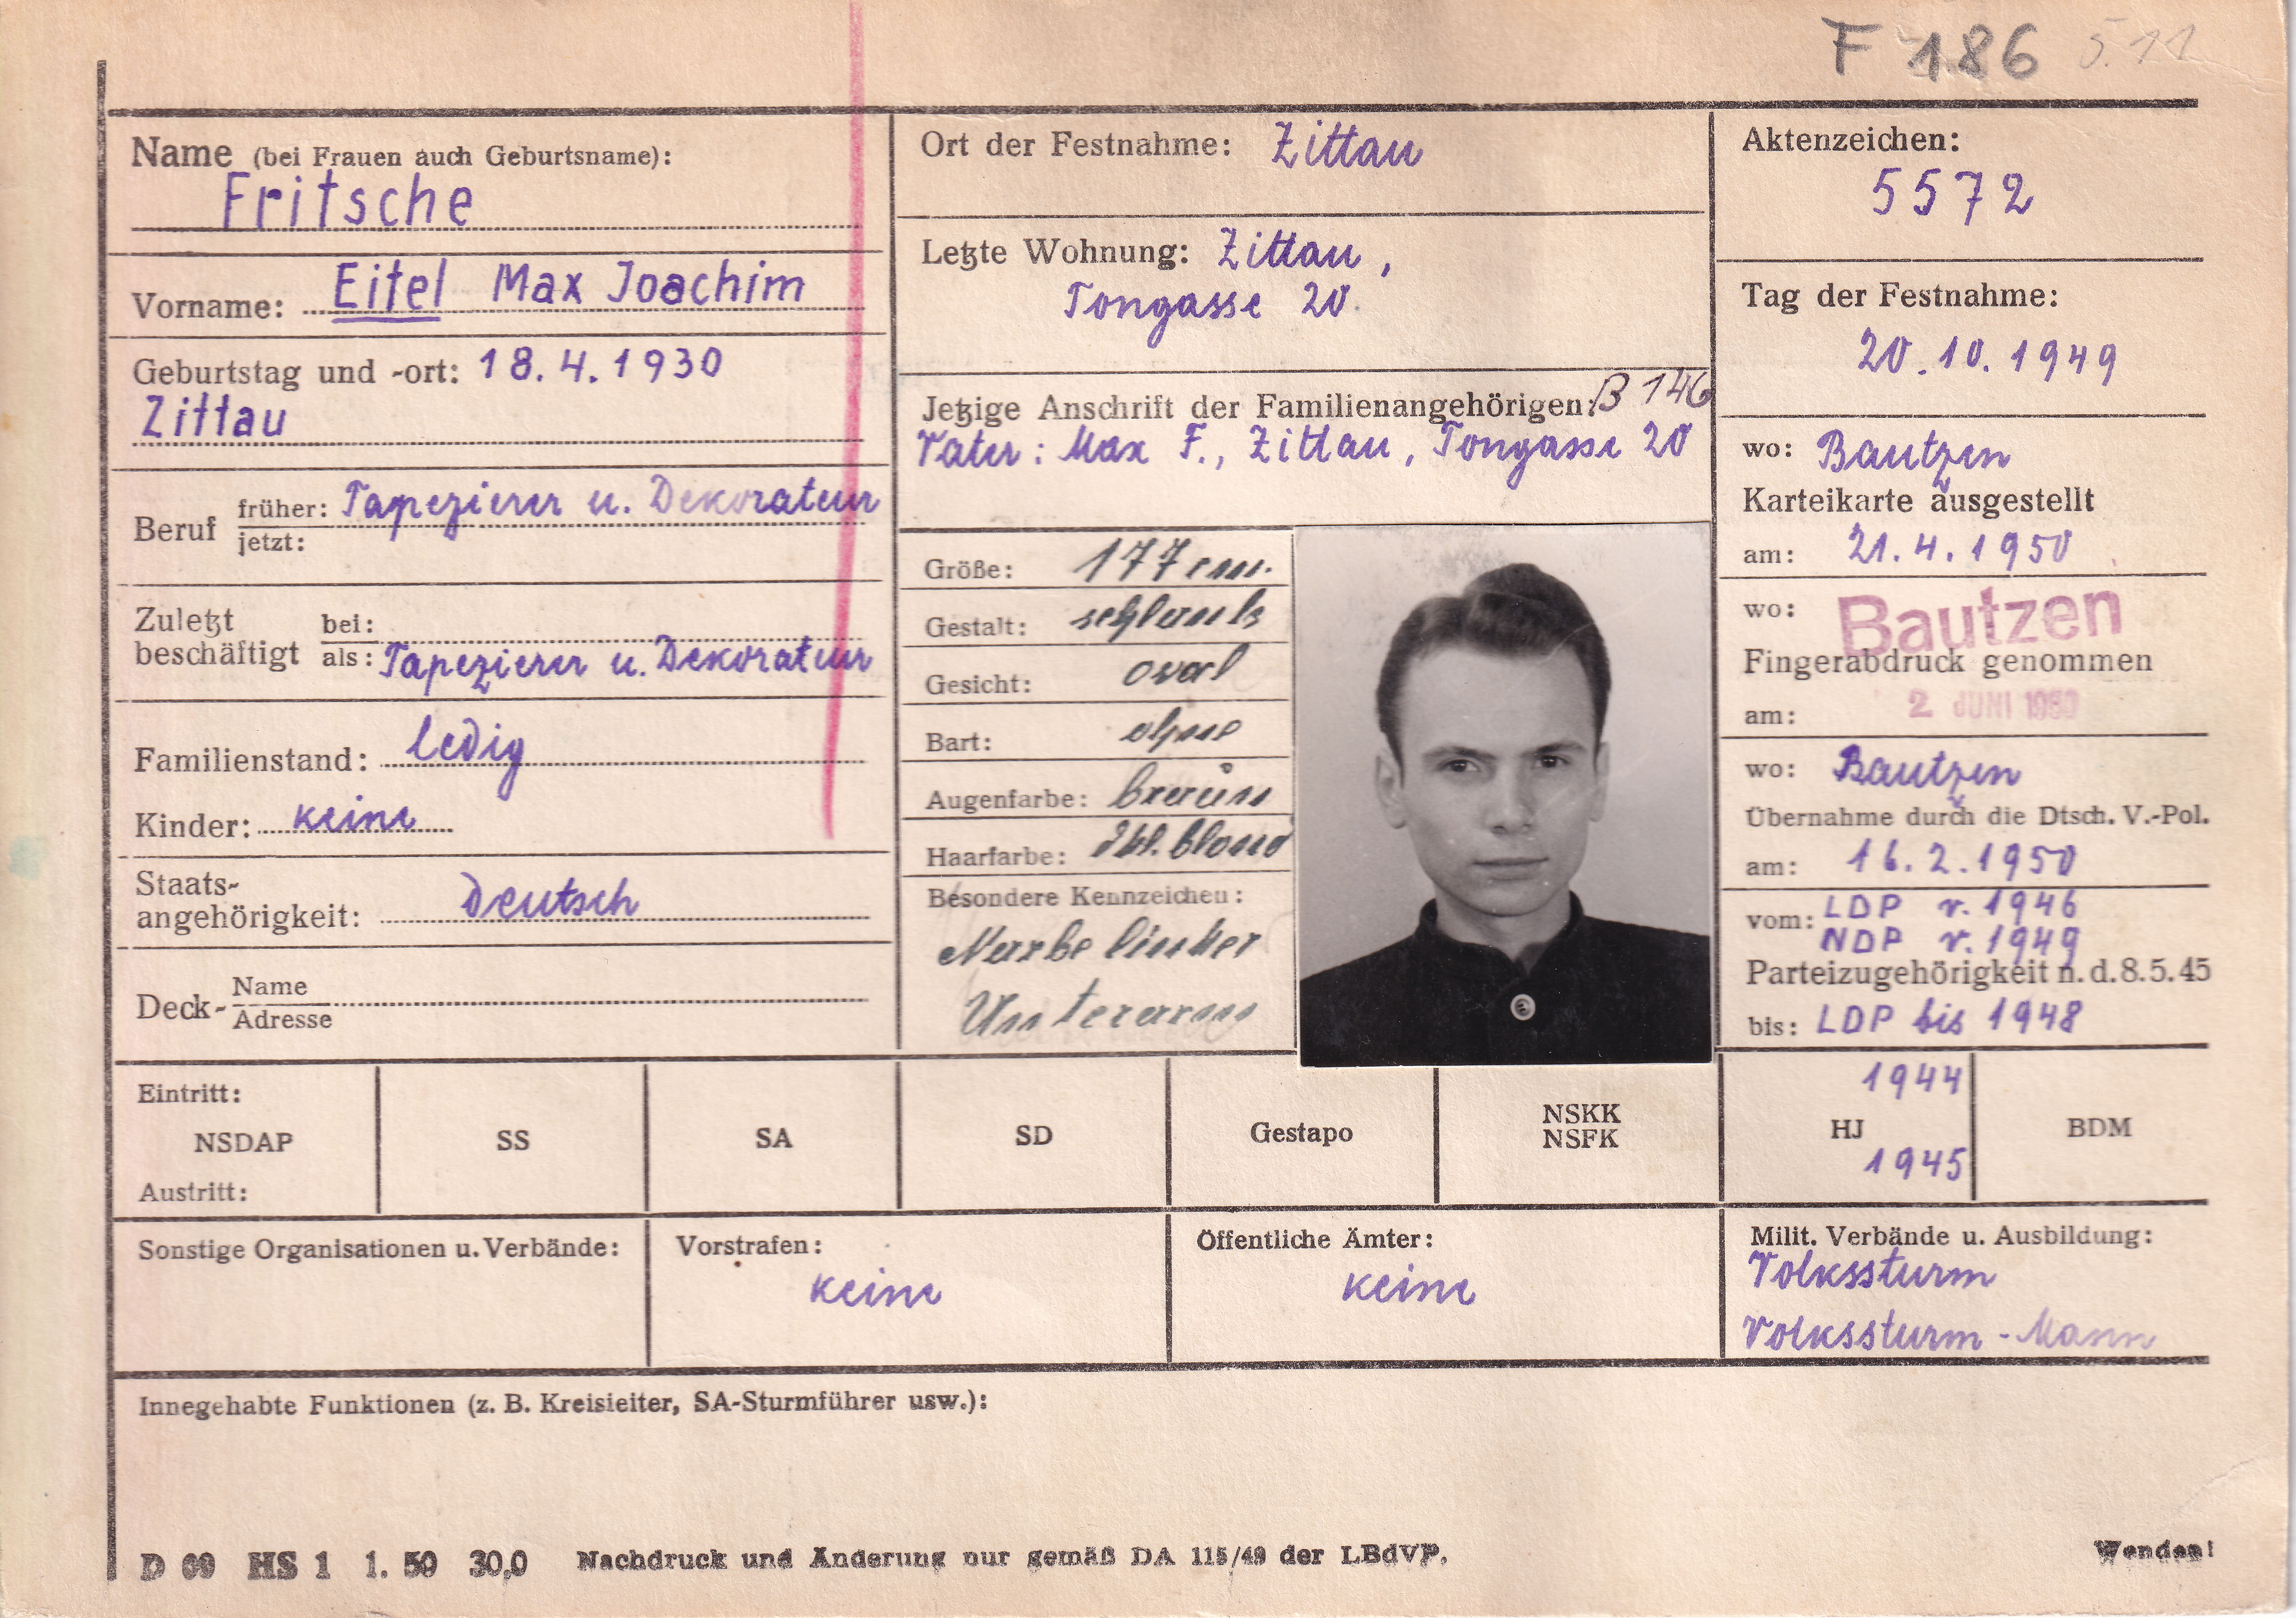 F 186 5.11
Name (bei Frauen auch Geburtsname):
Fritsche
Vorname: Eitel Max Joachim
Geburtstag und -ort: 18.4.1930
Zittau
Beruf früher: Tapezierer u. Dekorateur
jetzt:
Zuletzt beschäftigt bei:
als: Tapezierer u. Dekorateur
Familienstand: ledig
Kinder: keine
Staats-
angehörigkeit: Deutsch
Deck- Name
Adresse
Ort der Festnahme: Zittau
Letzte Wohnung: Zittau,
Tongasse 20.
Jetzige Anschrift der Familienangehörigen: B 146
Vater: Max F., Zittau, Tongasse 20
Größe: 177 cm.
Gestalt: schlank
Gesicht: oval
Bart: ohne
Augenfarbe: braun
Haarfarbe: dkl. blond
Besondere Kennzeichen:
Narbe linker
Unterarm
Aktenzeichen:
5572
Tag der Festnahme:
20.10.1949
wo: Bautzen
Karteikarte ausgestellt
am: 21.4.1950
wo: Bautzen
Fingerabdruck genommen
am: 2 JUNI 1950
wo: Bautzen
Übernahme durch die Dtsch. V.-Pol.
am: 16.2.1950
vom: LDP v. 1946
NDP v. 1949
Parteizugehörigkeit n. d. 8.5.45
bis: LDP bis 1948
Eintritt:
NSDAP
Austritt:
SS
SA
SD
Gestapo
NSKK
NSFK
1944
HJ
1945
BDM
Sonstige Organisationen u. Verbände:
Vorstrafen:
keine
Öffentliche Ämter:
keine
Milit. Verbände u. Ausbildung:
Volkssturm
Volkssturm - Mann
Innegehabte Funktionen (z. B. Kreisleiter, SA-Sturmführer usw.):
D 09 HS 1 1. 50 30,0 Nachdruck und Änderung nur gemäß DA 115/49 der LBdVP.
Wenden!